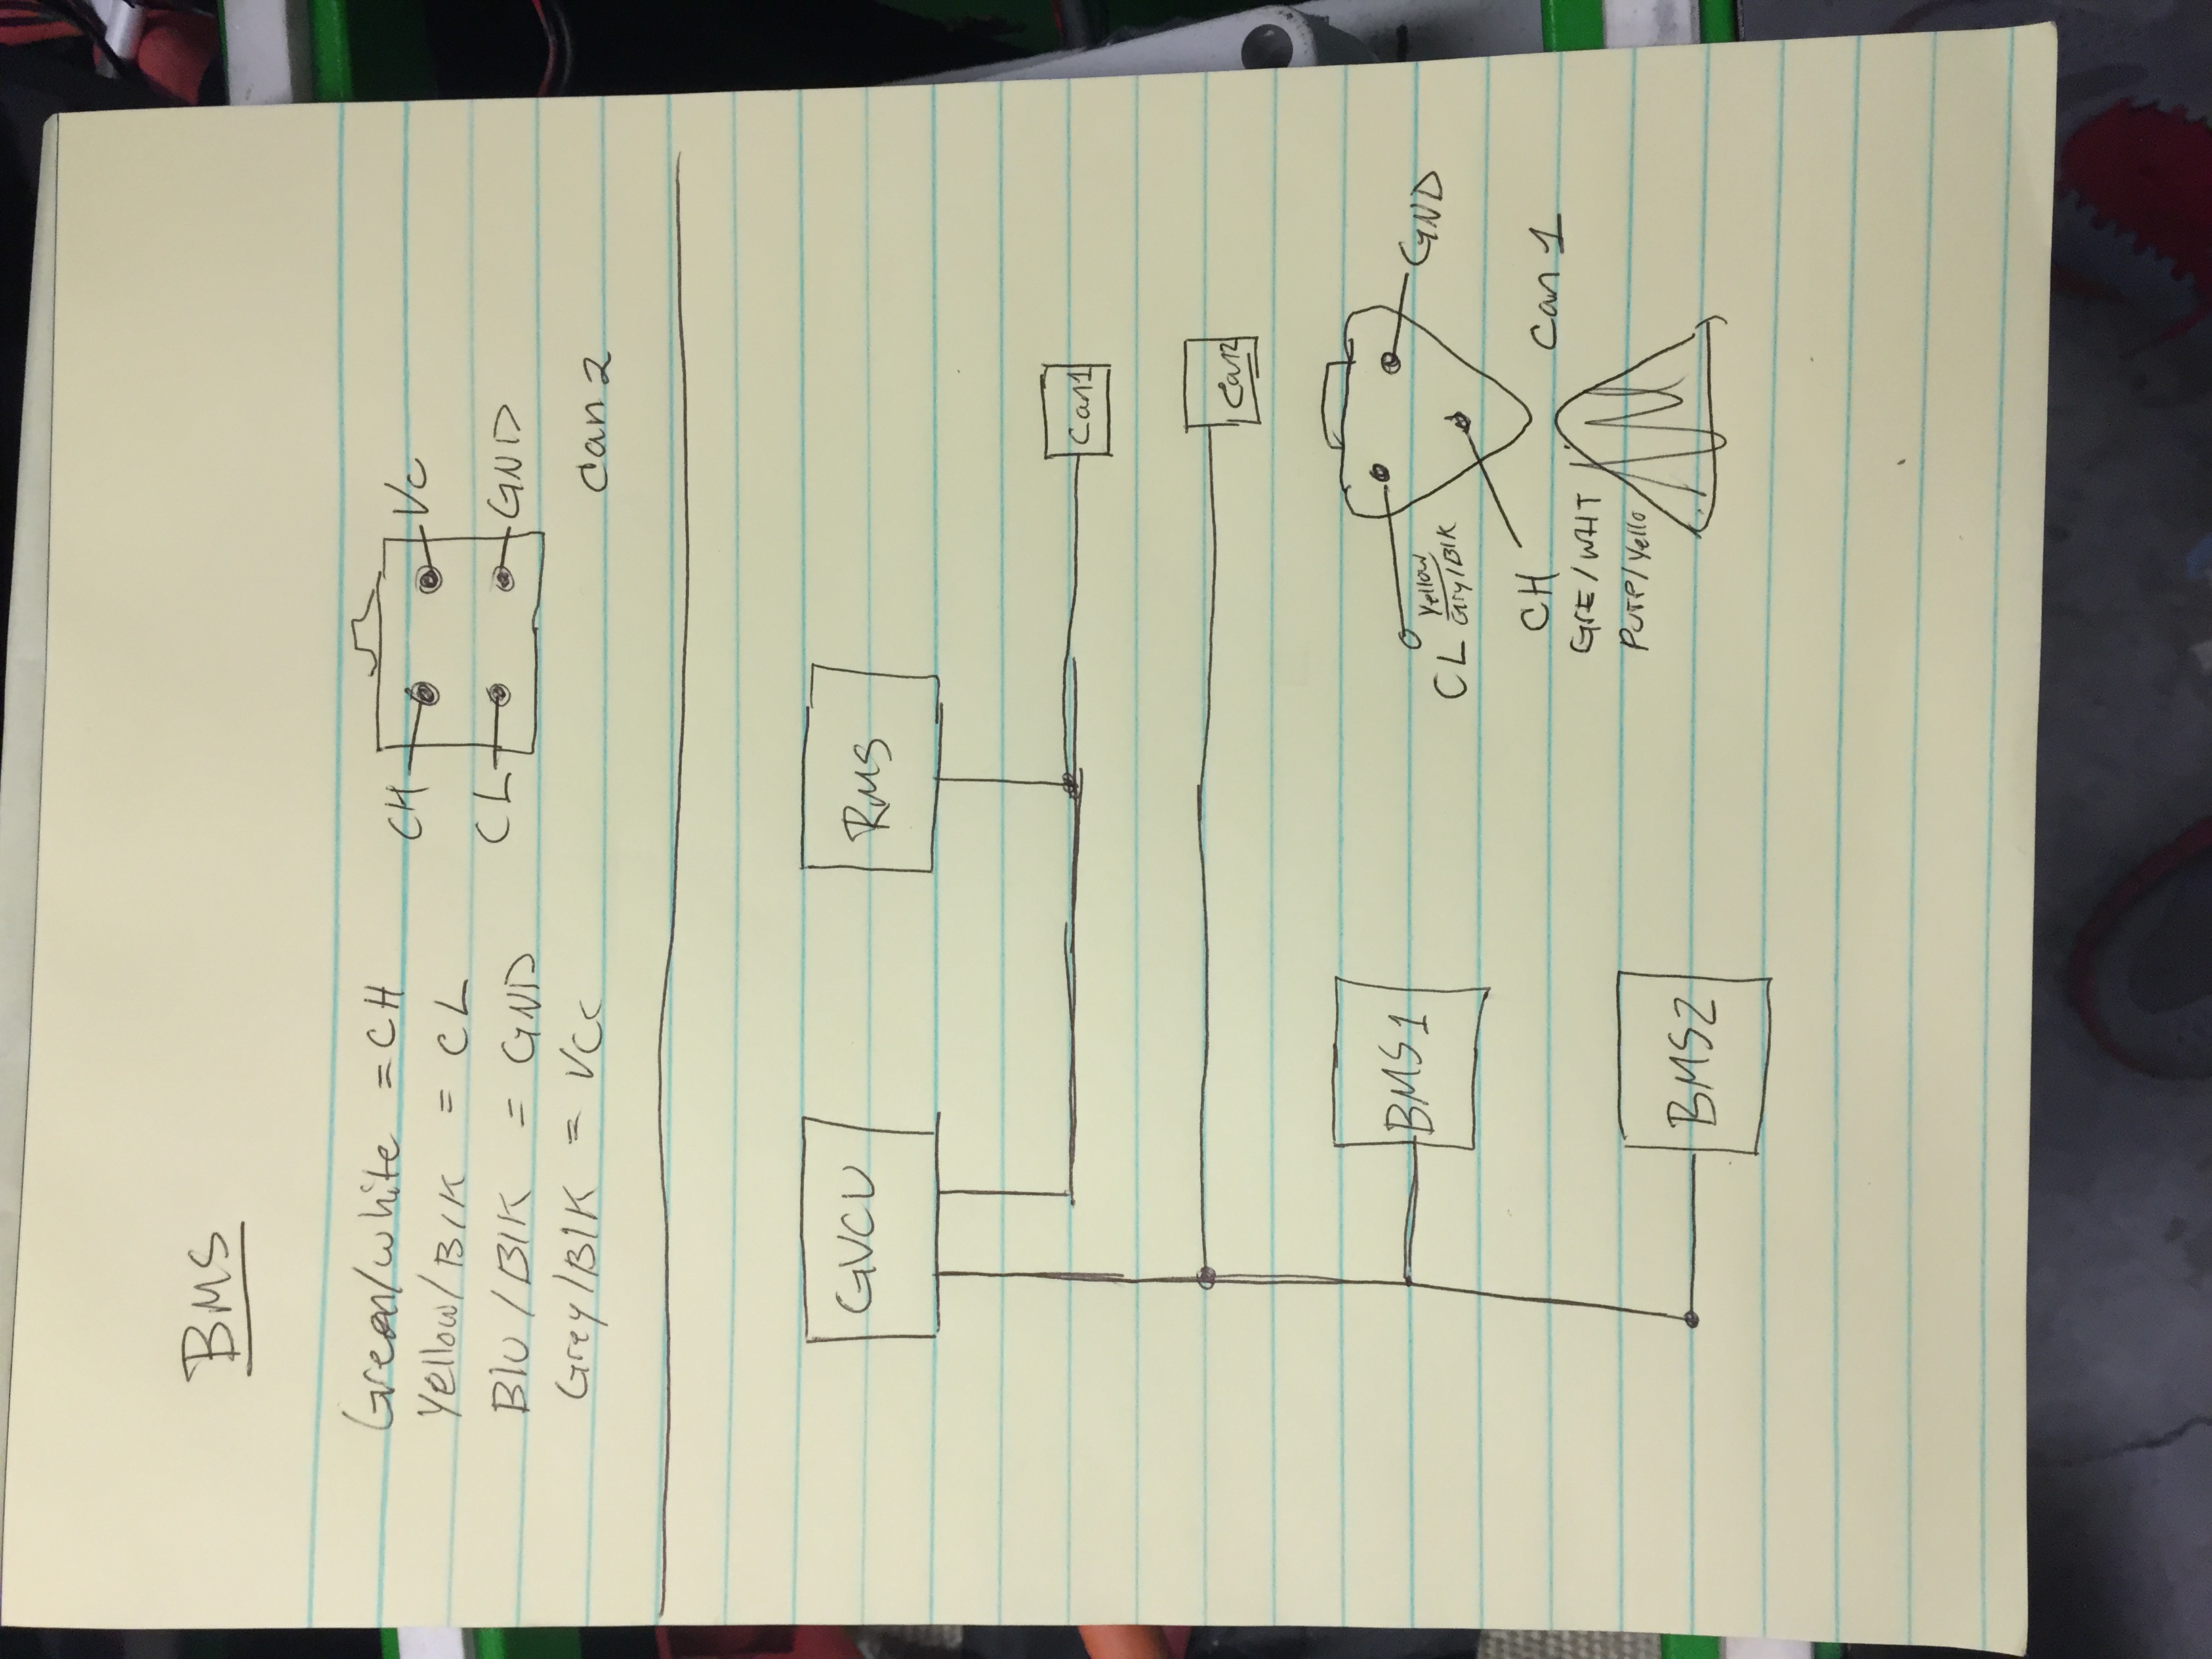 BMS
Green/white = CH
Yellow/Blk = CL
Blu/Blk = GND
Grey/Blk = Vcc
CH
Vc
CL
GND
Can 2
GVCU
RMS
Can1
Can2
BMS1
CL Yellow
Gry/Blk
GND
CH
Can 1
GrE/WHT
Purp/Yello
BMS2